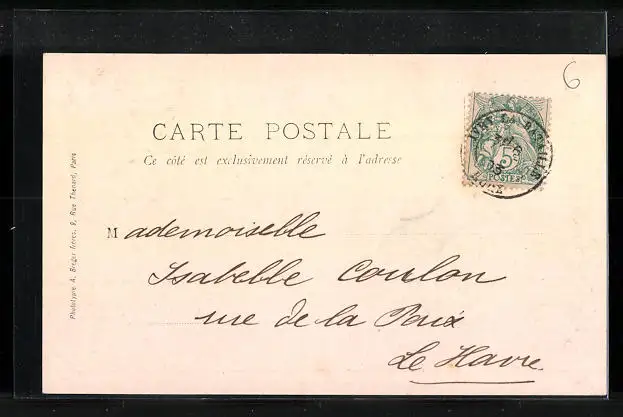 6
CARTE POSTALE
Ce côté est exclusivement réservé à l'adresse
5
POSTES
Mademoiselle
Isabelle Coulon
rue de la Paix
Le Havre
Phototypie A. Breger frères, 9, Rue Thenard, Paris